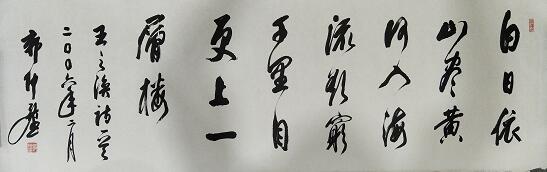 白日依
山尽黄
河入海
流欲穷
千里目
更上一
层楼
王之涣诗一首
二〇〇六年二月